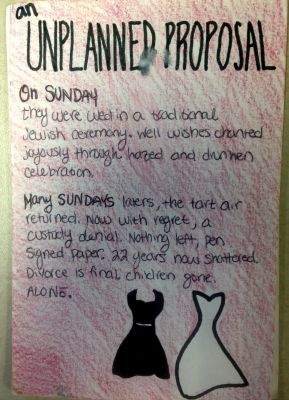 an
UNPLANNED PROPOSAL
On SUNDAY
they were wed in a traditional
Jewish ceremony. Well wishes chanted
joyously through hazed and drunken
celebration.
Many SUNDAYS laters, the tart air
returned. Now with regret, a
custody denial. Nothing left, pen
signed paper. 22 years now shattered.
Divorce is final, children gone.
ALONE.